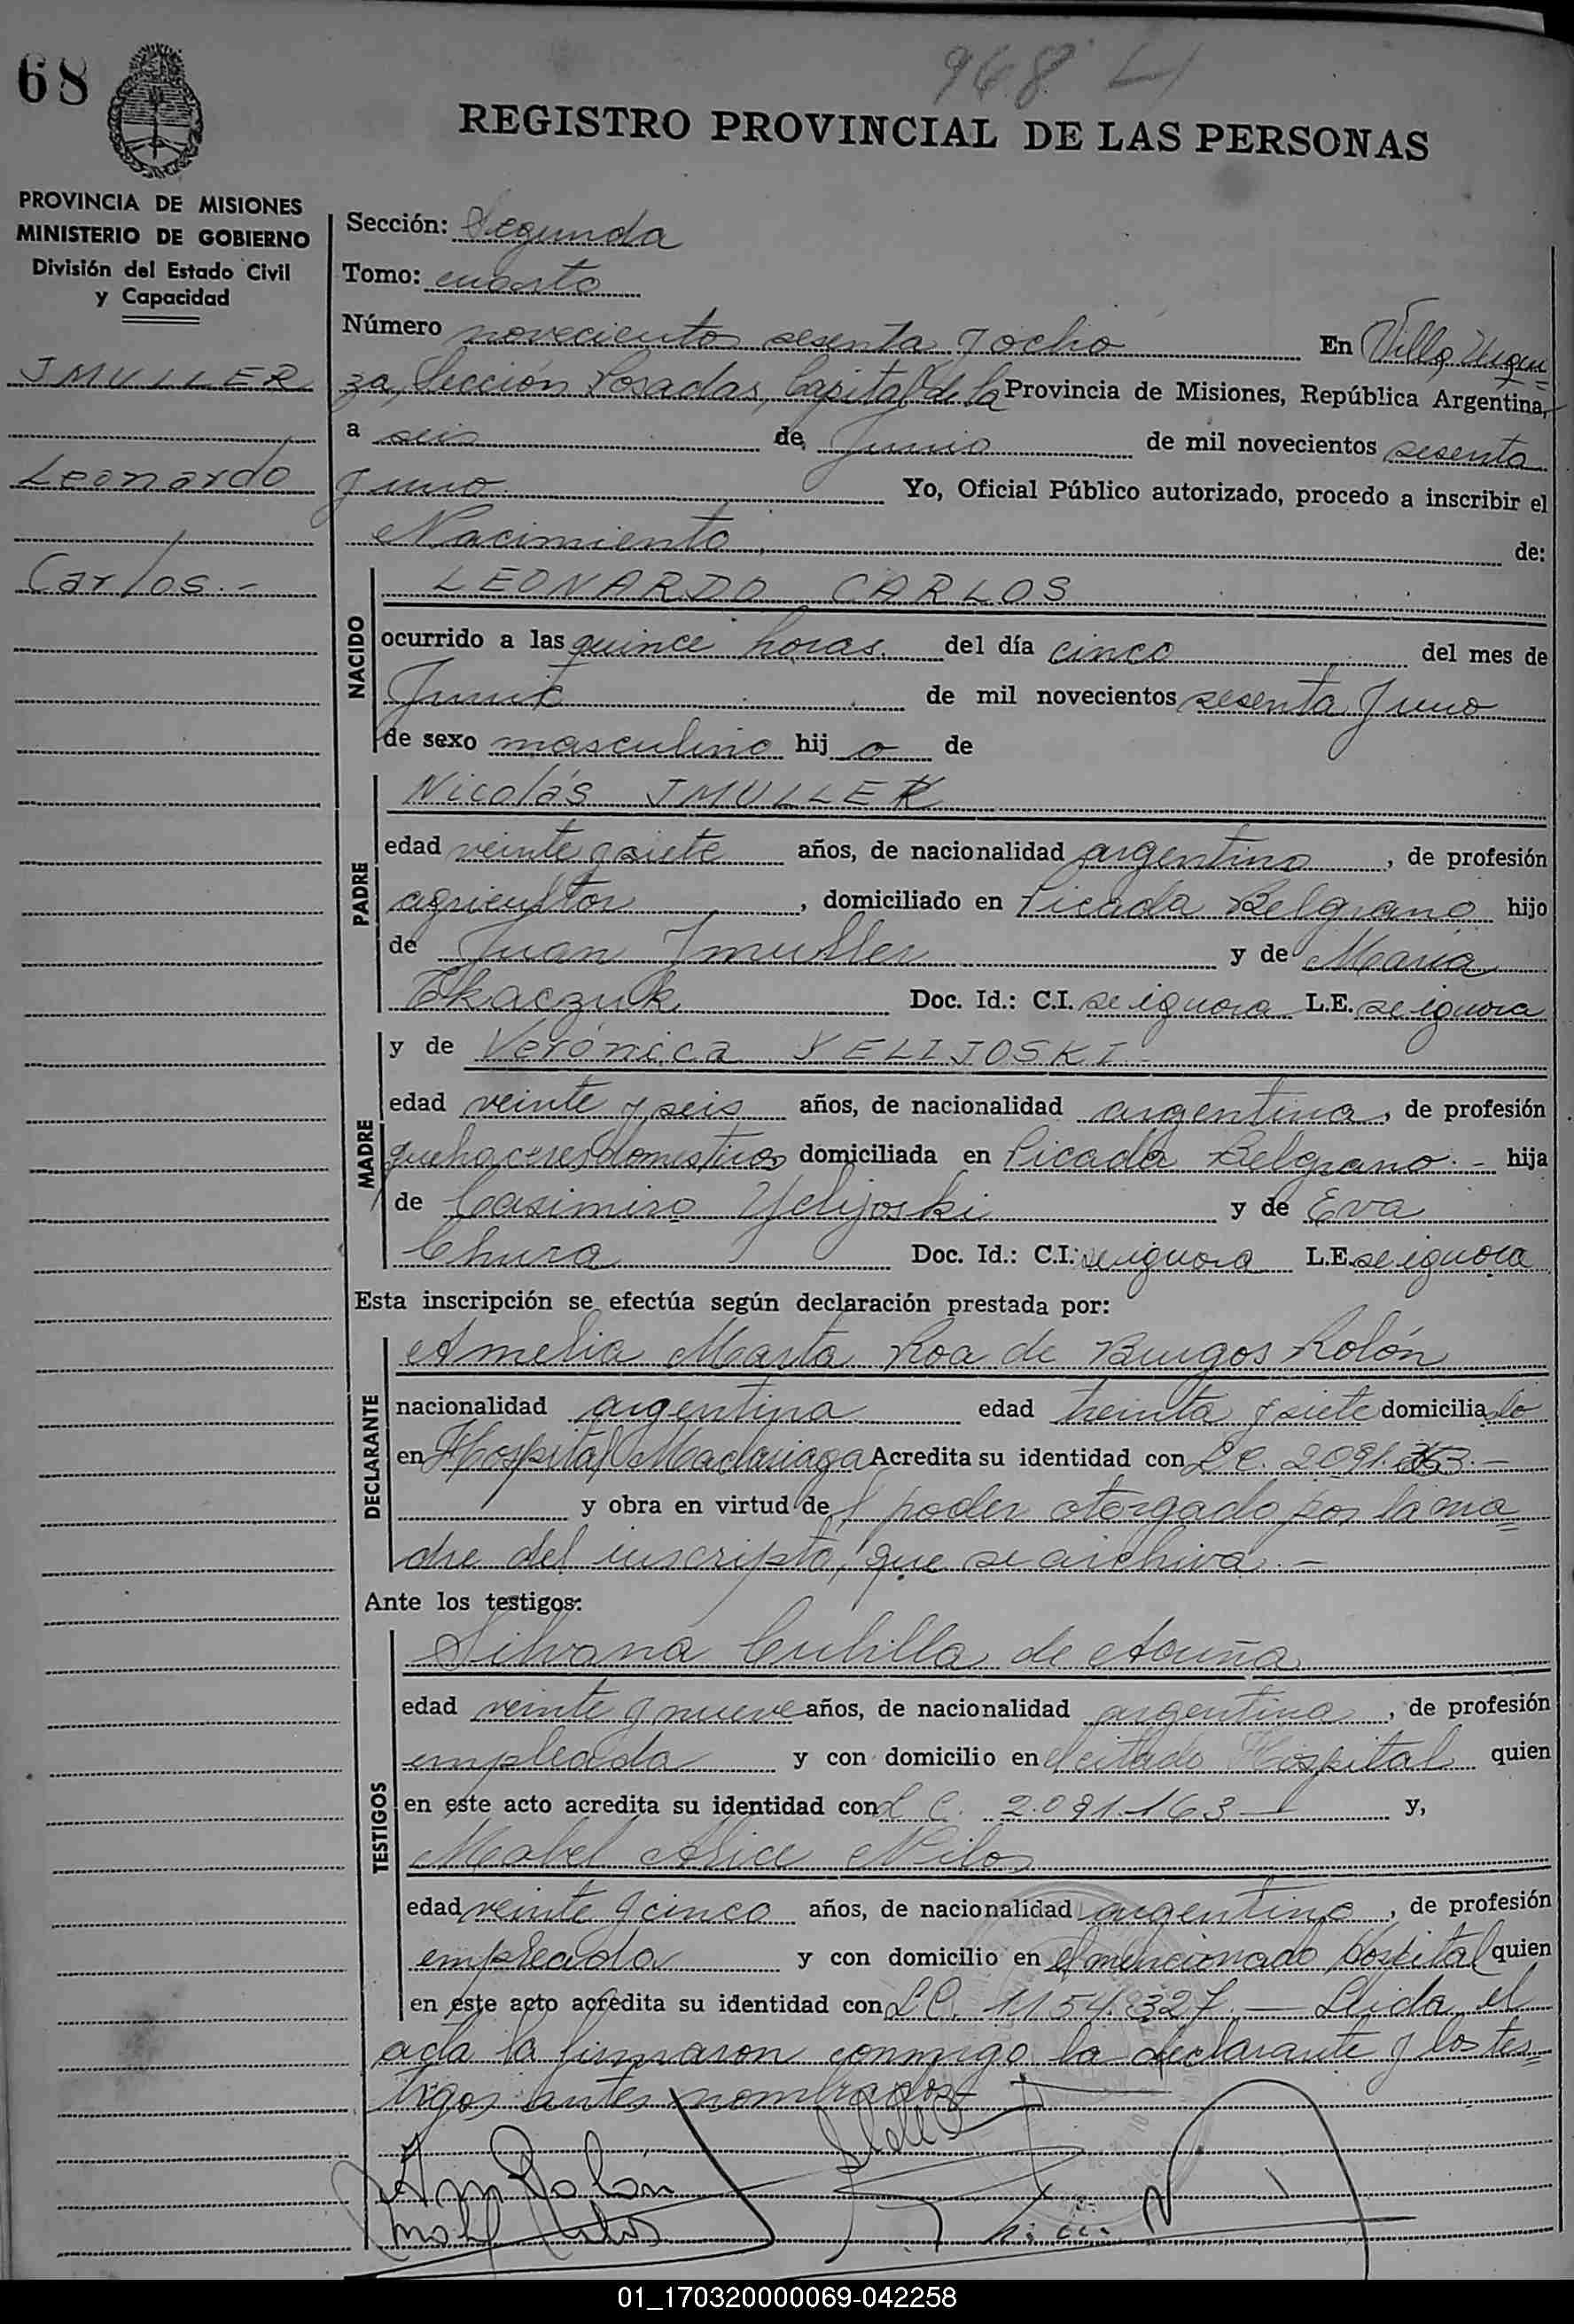 68
968 4
REGISTRO PROVINCIAL DE LAS PERSONAS
PROVINCIA DE MISIONES
MINISTERIO DE GOBIERNO
División del Estado Civil
y Capacidad
JMULLER
Leonardo
Carlos.-
Sección: Segunda
Tomo: cuarto
Número novecientos sesenta y ocho En Villa Urqui=
za, Sección Posadas, Capital de la Provincia de Misiones, República Argentina,
a seis de Junio de mil novecientos sesenta
y uno Yo, Oficial Público autorizado, procedo a inscribir el
Nacimiento de:
NACIDO
LEONARDO CARLOS
ocurrido a las quince horas. del día cinco del mes de
Junio de mil novecientos sesenta y uno
de sexo masculino hij o de
PADRE
Nicolás JMULLER
edad veinte y siete años, de nacionalidad argentino, de profesión
agricultor, domiciliado en Picada Belgrano hijo
de Juan Jmuller y de María
Tkaczuk Doc. Id.: C.I. se ignora L.E. se ignora
MADRE
y de Verónica YELIJOSKI-
edad veinte y seis años, de nacionalidad argentina, de profesión
quehaceres domesticos domiciliada en Picada Belgrano.- hija
de Casimiro Yelijoski y de Eva
Chura Doc. Id.: C.I. se ignora L.E. se ignora
Esta inscripción se efectúa según declaración prestada por:
DECLARANTE
Amelia Marta Roa de Burgos Rolón
nacionalidad argentina edad treinta y siete domicilia do
en Hospital Madariaga Acredita su identidad con L C. 2.091.
y obra en virtud de l poder otorgado por la ma=
dre del inscripto, que se archiva.-
Ante los testigos:
TESTIGOS
Silvana de Acuña
edad veinte y nueve años, de nacionalidad argentina, de profesión
empleada y con domicilio en el citado Hospital quien
en este acto acredita su identidad con L C. 2.091.163- y,
Mabel Alice Nilos
edad veinte y cinco años, de nacionalidad argentina, de profesión
empleada y con domicilio en el mencionado Hospital quien
en este acto acredita su identidad con L C. 1154.327.- Leida el
acta la firmaron conmigo la declarante y los tes=
tigos antes nombrados-
Am Rolón
01_170320000069-042258